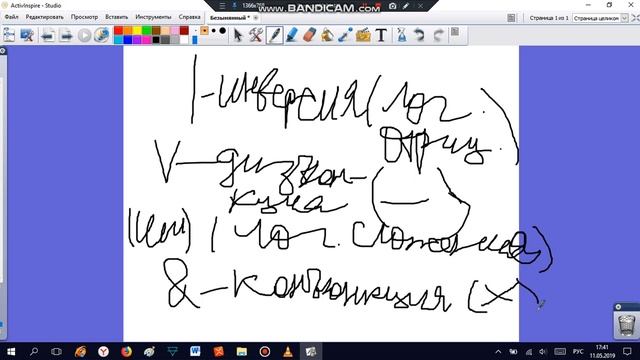 ActivInspire - Studio
1366x768
www.BANDICAM.com
Файл Редактировать Вид Вставить Инструменты Справка Безымянный*
Страница 1 из 1 Страница целиком
1-инверсия (лог.
отриц.)
V-дизъюн-
кция (—)
(или) (лог. сложения)
&-конъюнкция (×)
РУС
17:41
11.05.2019